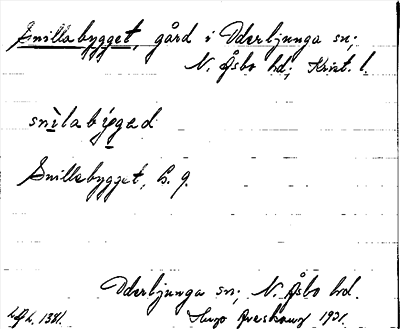 Snillabygget, gård i Oderljunga sn;
N. Åsbo hd; Krist. l.
snìlabýgad
Snillabygget, h. g.
Oderljunga sn; N. Åsbo hd.
Hugo Areskoug 1931.